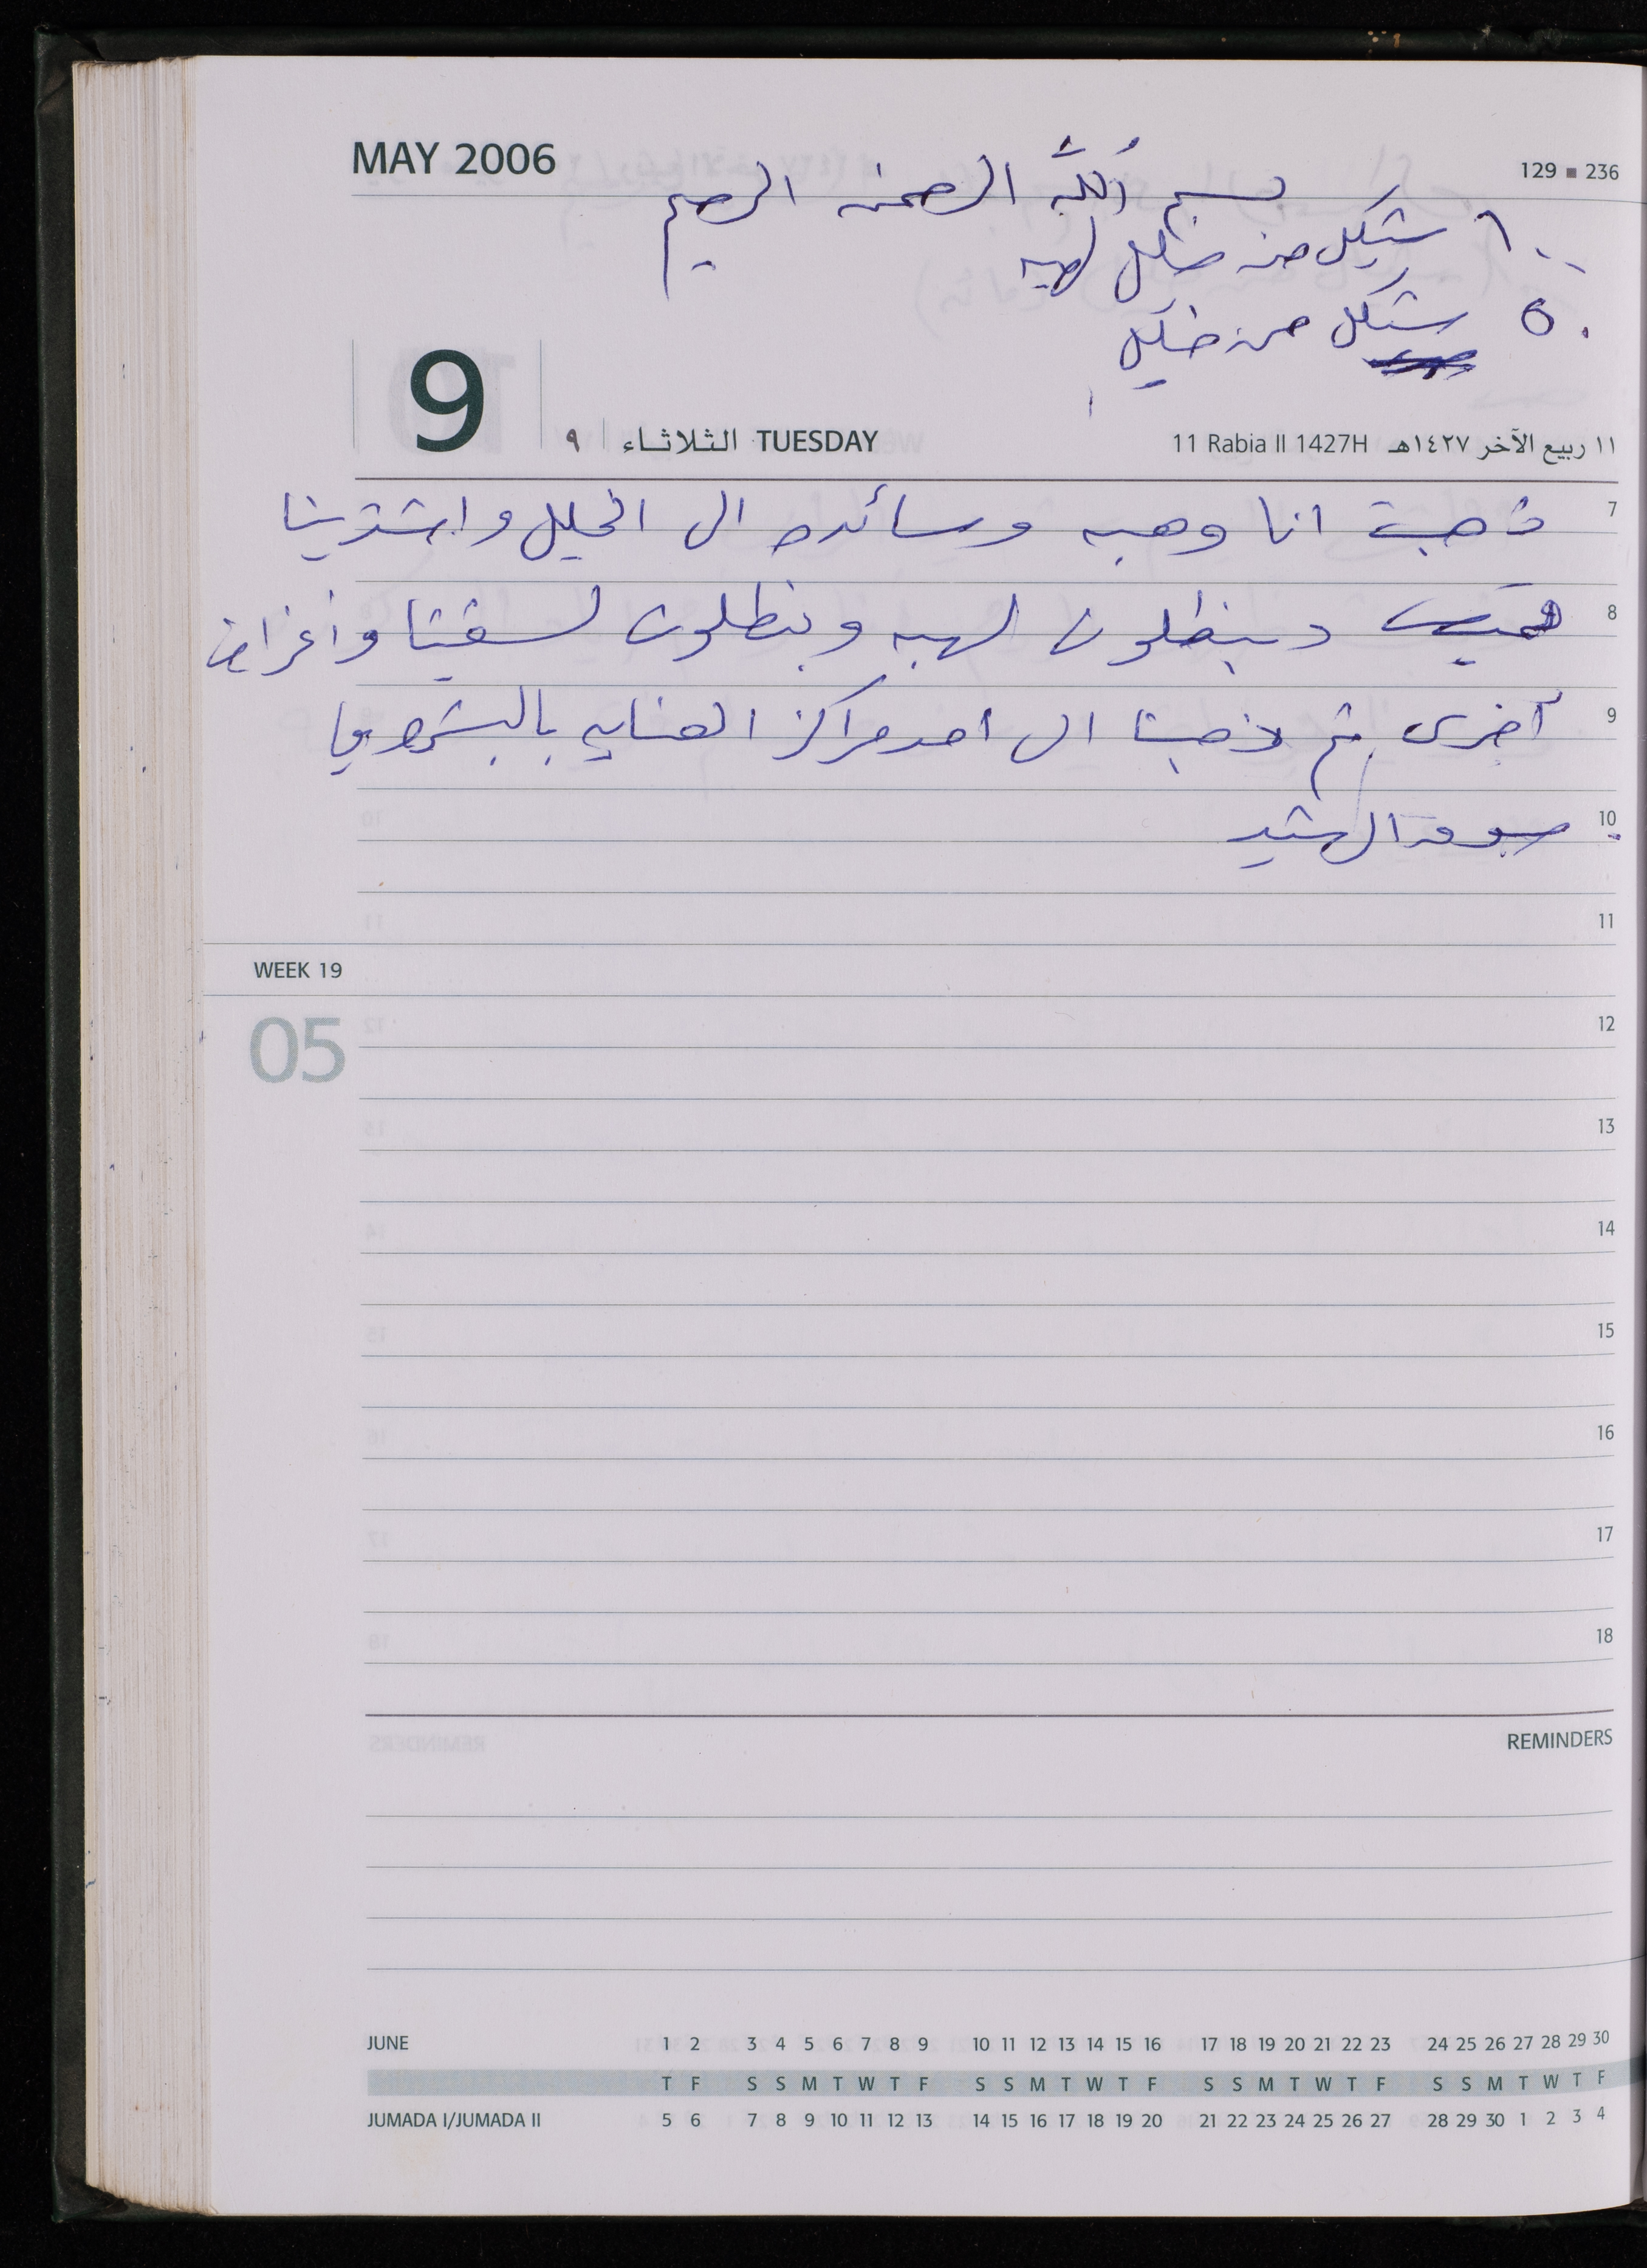 MAY 2006
129 ■ 236
بسم الله الرحمن الرحيم
١٠٠ شيكل من خليل لهبه
٥٠ شيكل من خليل
9
٩ الثلاثاء TUESDAY
11 Rabia II 1427H ١١ ربيع الآخر ١٤٢٧هـ
7
ذهبت انا وهبه وسائده الى الخليل واشترينا
8
قميص وبنطلون لهبه وبنطلون لـ وأغراض
9
أخرى ثم ذهبنا الى احد مراكز العنايه بالبشره
10
11
WEEK 19
05
12
13
14
15
16
17
18
REMINDERS
JUNE 1 2 3 4 5 6 7 8 9 10 11 12 13 14 15 16 17 18 19 20 21 22 23 24 25 26 27 28 29 30
T F S S M T W T F S S M T W T F S S M T W T F S S M T W T F
JUMADA I/JUMADA II 5 6 7 8 9 10 11 12 13 14 15 16 17 18 19 20 21 22 23 24 25 26 27 28 29 30 1 2 3 4